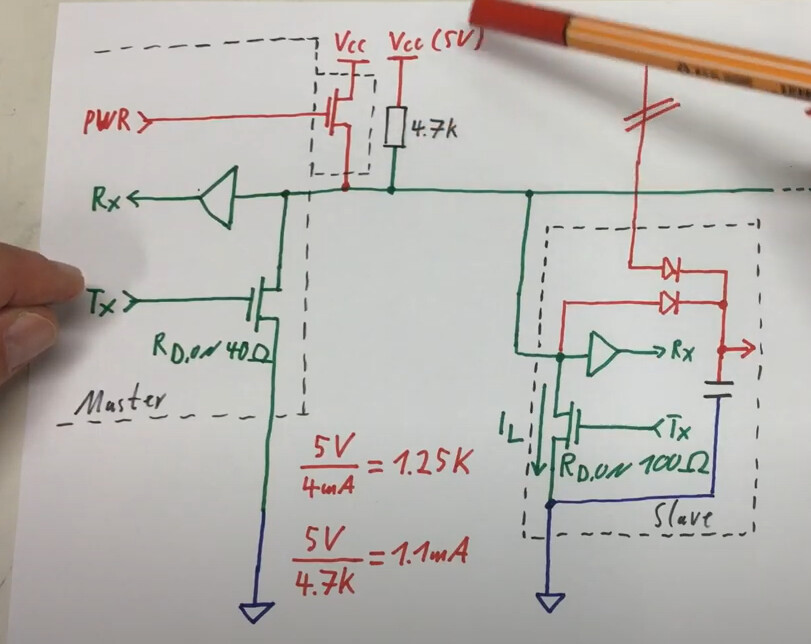 Vcc Vcc (5V)
PWR
4.7k
Rx
Tx
RD,ON 40Ω
Master
Rx
IL
Tx
RD,ON 100Ω
Slave
5V
4mA = 1.25K
5V
4.7k = 1.1mA